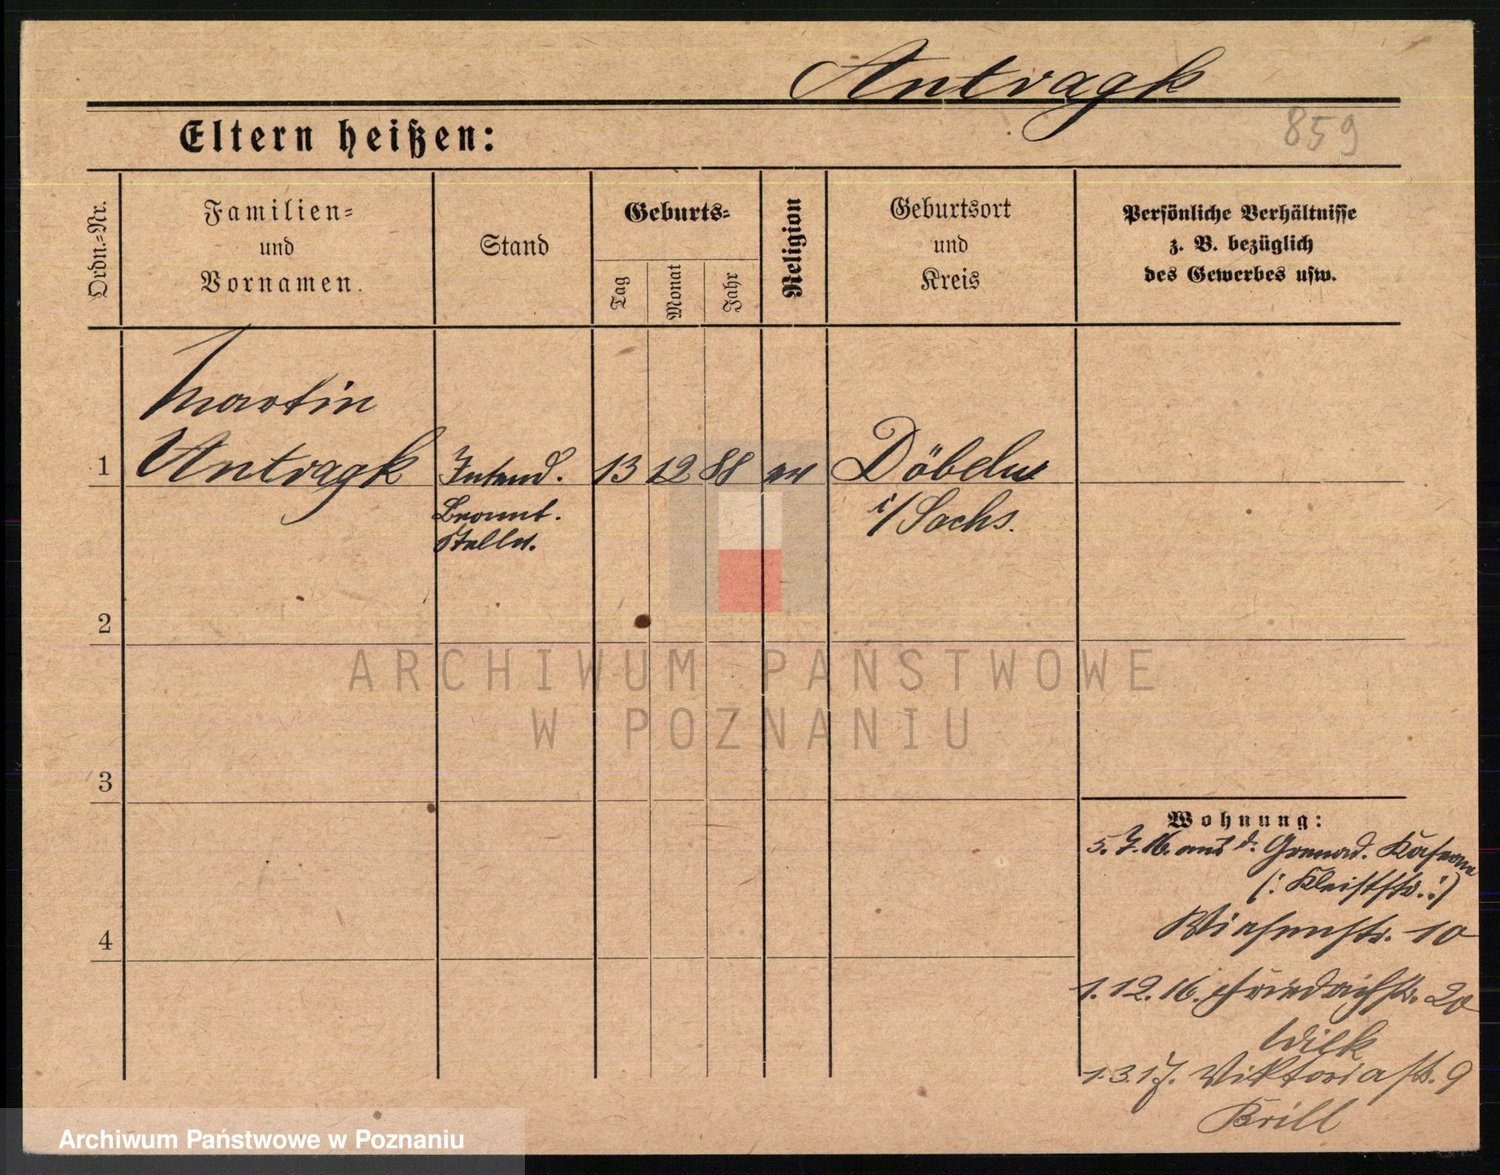 Antragk
859
Eltern heißen:
Ordn.-Nr.
Familien-
und
Vornamen.
Stand
Geburts-
Tag
Monat
Jahr
Religion
Geburtsort
und
Kreis
Persönliche Verhältnisse
z. B. bezüglich
des Gewerbes usw.
Martin
1 Antragk Intend. 13 12 88 ev Döbeln
Beamt. i/Sachs.
Stellv.
2
ARCHIWUM PAŃSTWOWE
W POZNANIU
3
Wohnung:
5.7.16. aus d. Grenad. Kaserne
(: Kleiststr. :)
4 Wiesenstr. 10
1.12.16. Friedrichstr. 20
Wilk
1.3.17. Viktoriastr. 9
Brill
Archiwum Państwowe w Poznaniu